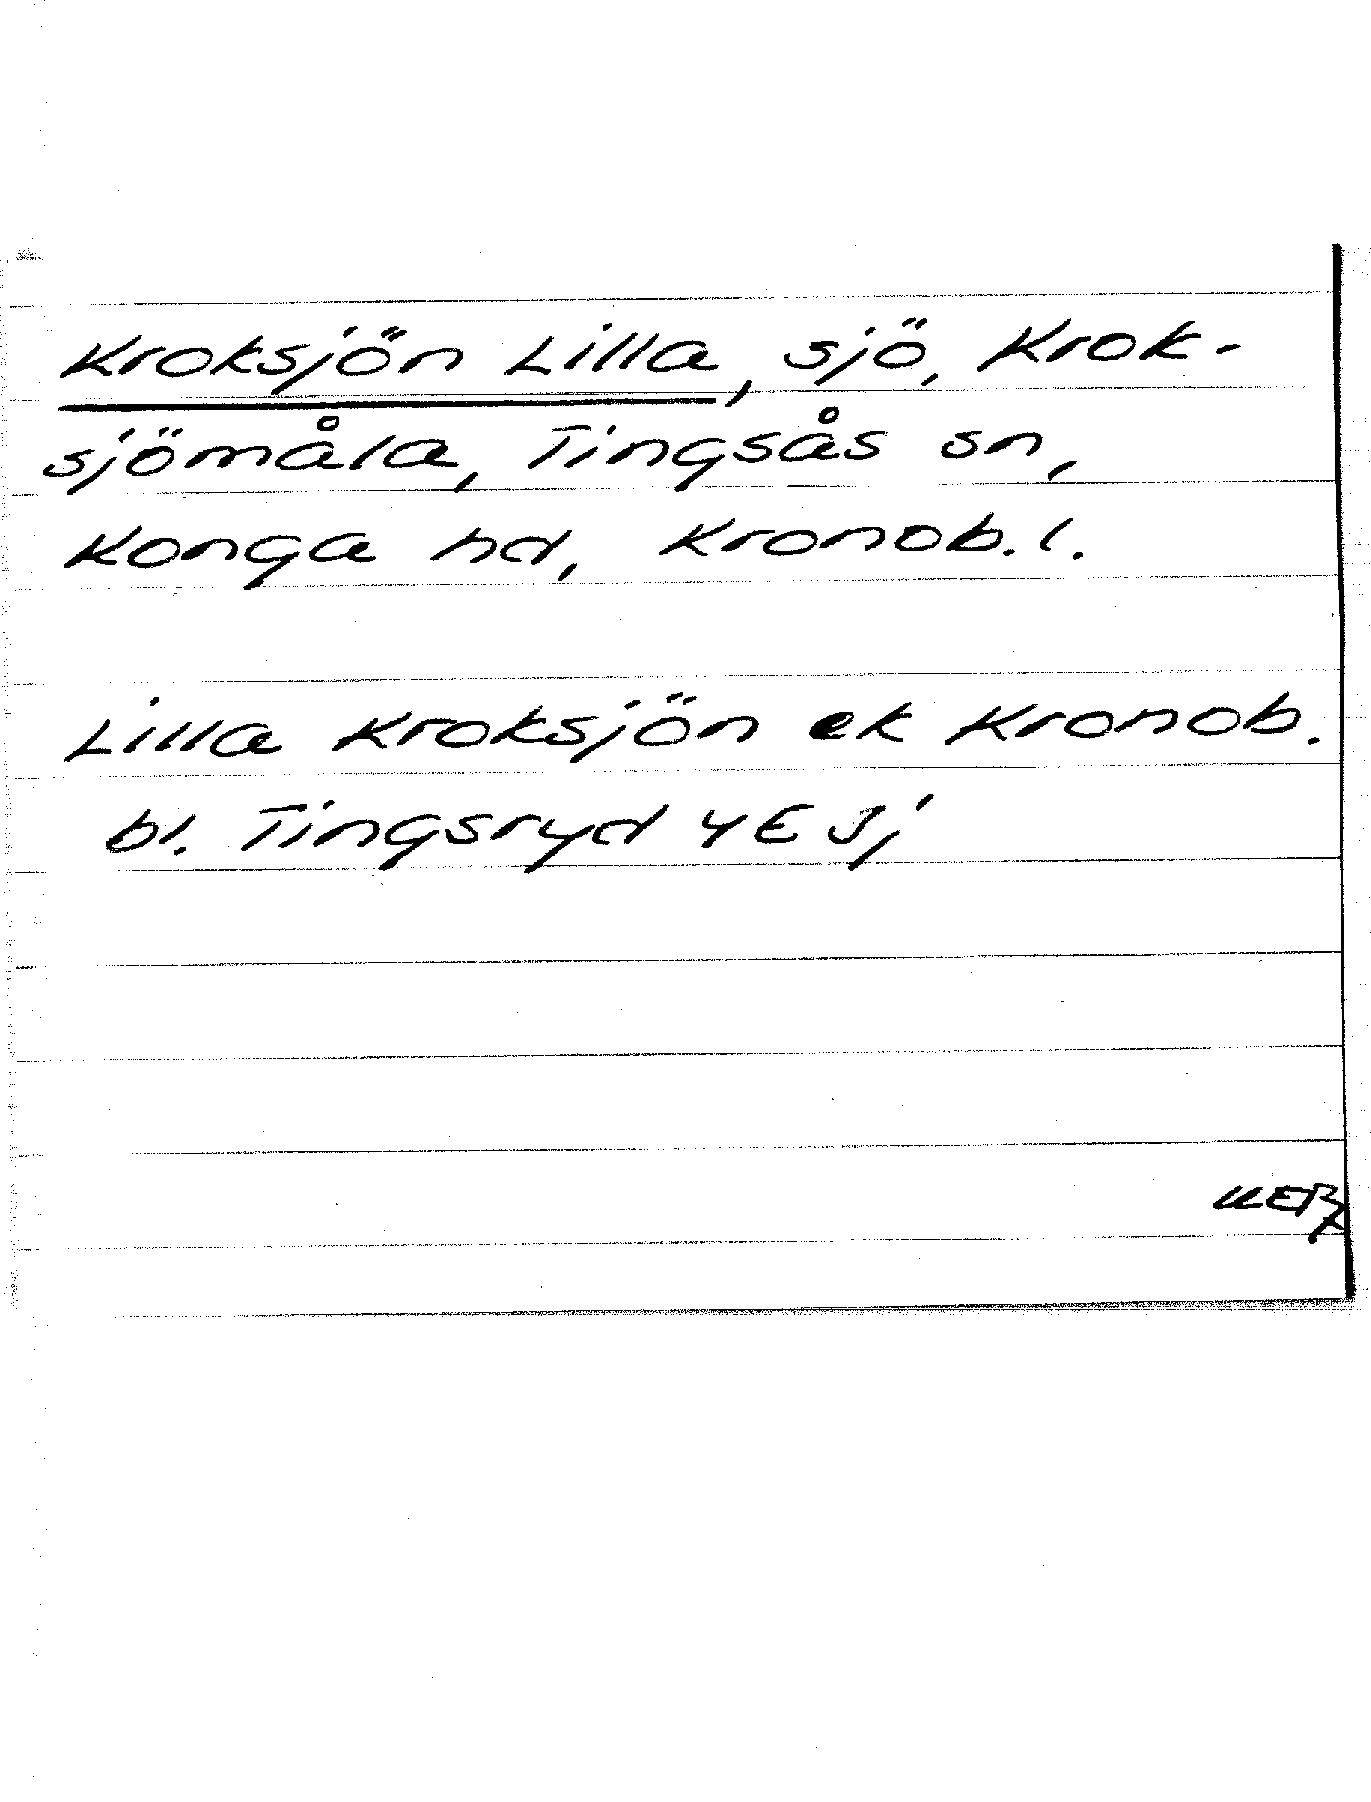 Kroksjön Lilla, sjö, Krok-
sjömåla, Tingsås sn,
Konga hd, Kronob. l.
Lilla Kroksjön ek Kronob.
bl. Tingsryd 4E Jj